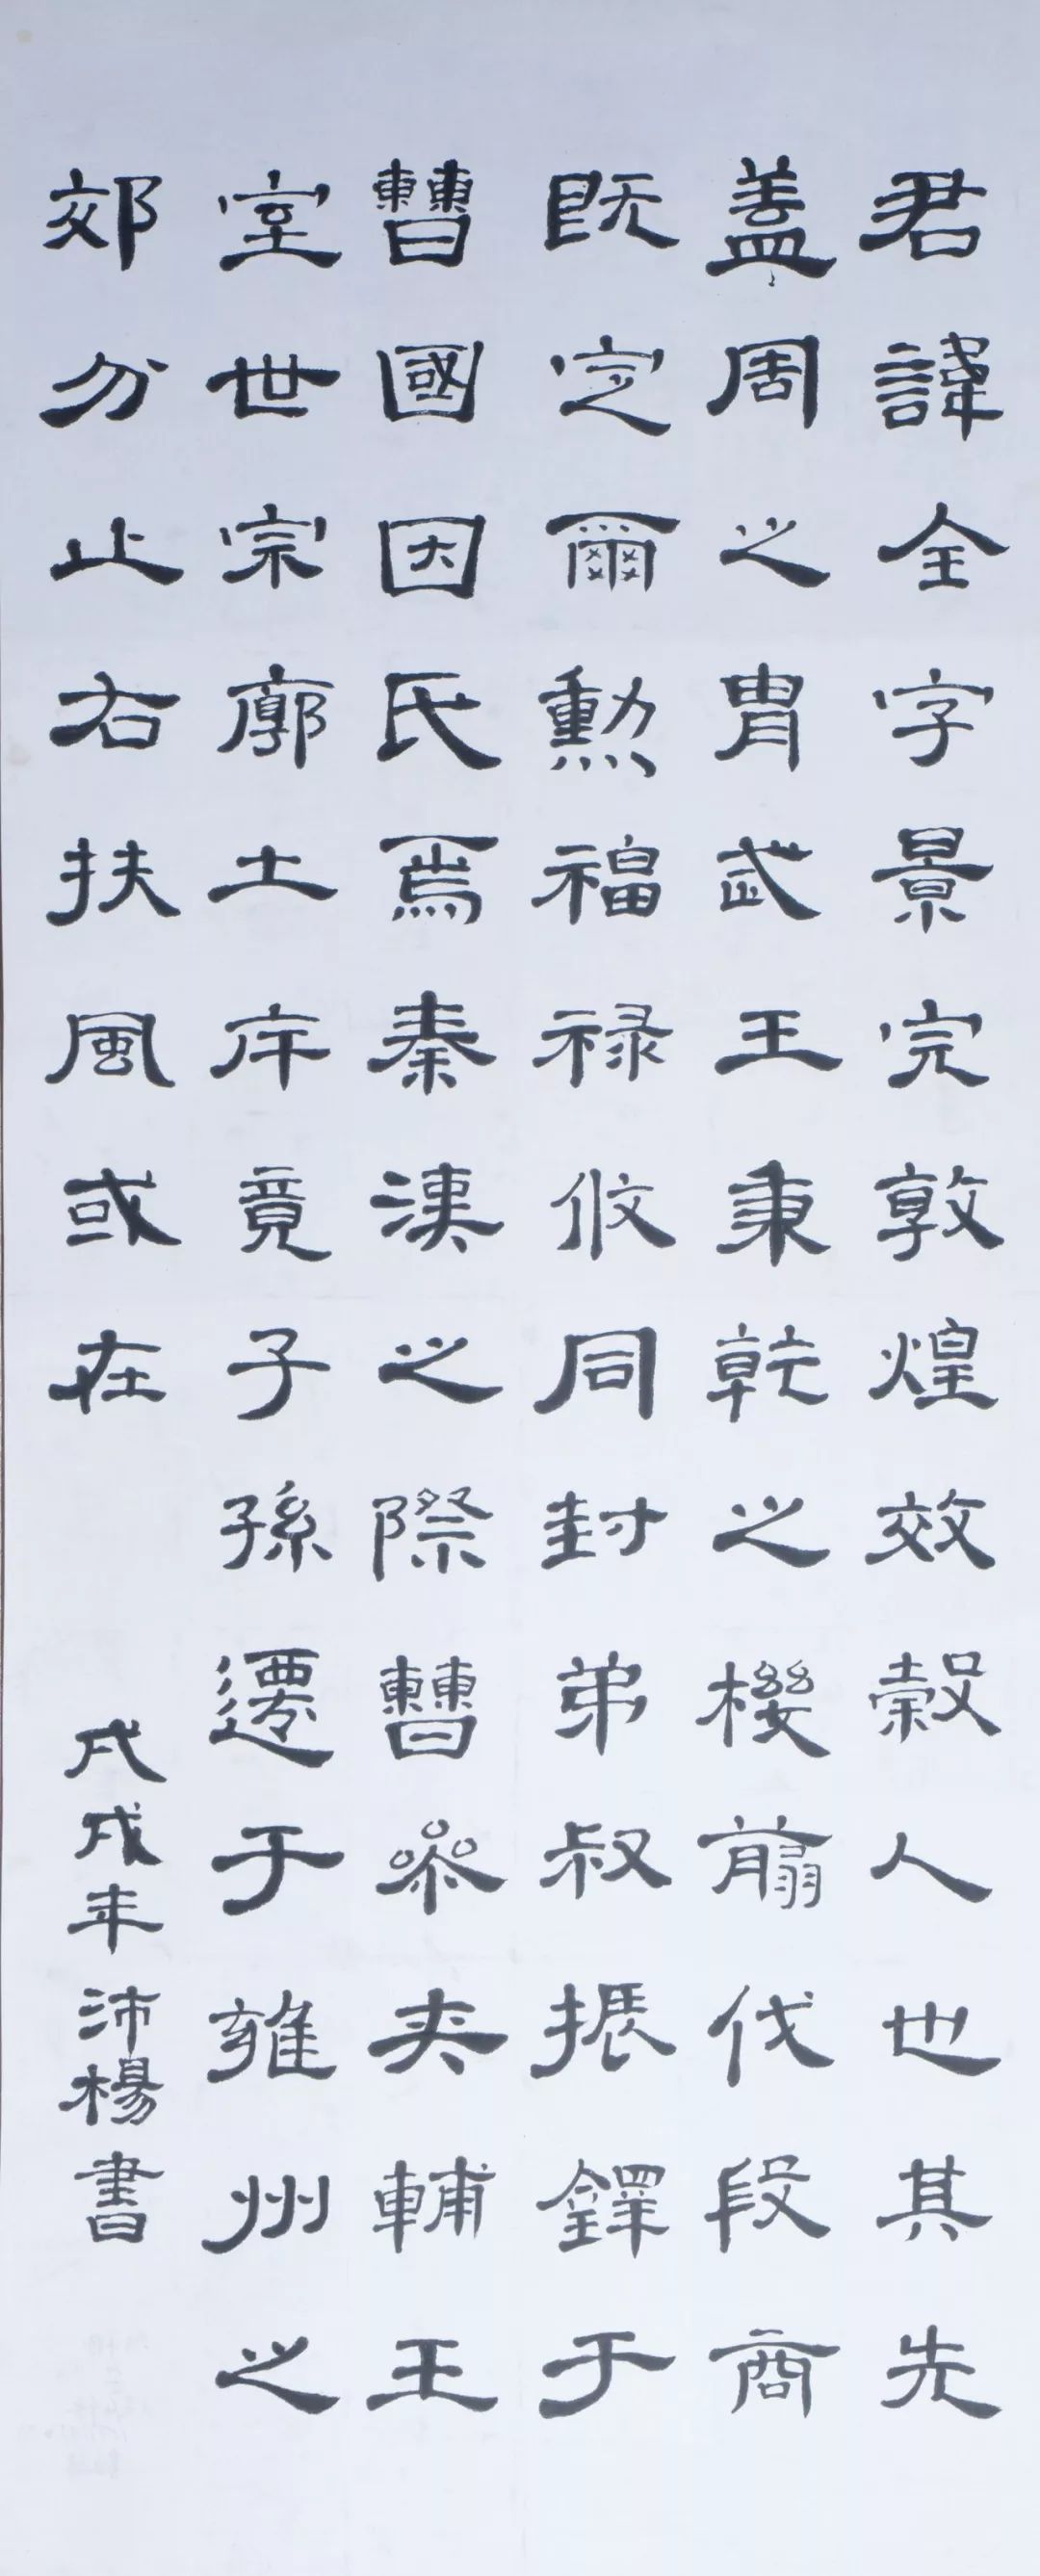 君諱全字景完敦煌效穀人也其先
蓋周之胄武王秉乾之機翦伐殷商
既定爾勳福祿攸同封弟叔振鐸于
曹國因氏焉秦漢之際曹參夾輔王
室世宗廓土斥竟子孫遷于雍州之
郊分止右扶風或在
戊戌年沛楊書